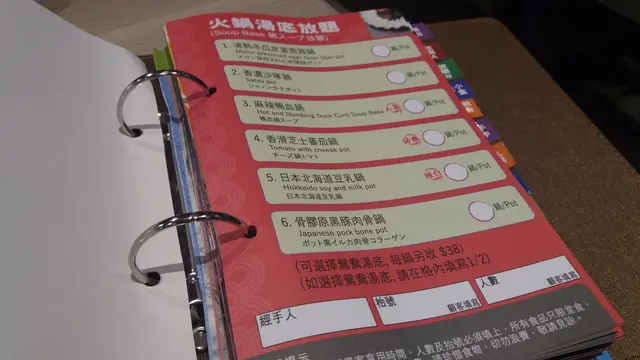 火鍋湯底放題
(Soup Base 鍋スープ 放題)
1. 清熱冬瓜皮蛋芫茜鍋
鍋/Pot
Melon preserved eggs Guan Qian pot
2. 香濃沙嗲鍋
鍋/Pot
Satay pot
シャノンサテポット
3. 麻辣鴨血鍋
鍋/Pot
Hot and Numbing Duck Curd Soup Base
鴨血鍋スープ
4. 香滑芝士蕃茄鍋
必選
鍋/Pot
Tomato with cheese pot
チーズ鍋トマト
5. 日本北海道豆乳鍋
推介
鍋/Pot
Hokkaido soy and milk pot
日本北海道豆乳鍋
6. 骨膠原黑豚肉骨鍋
鍋/Pot
Japanese pork bone pot
ポット黒イルカ肉骨コラーゲン
(可選擇鴛鴦湯底, 每鍋另收 $38)
(如選擇鴛鴦湯底, 請在格內填寫1/2)
經手人
枱號
顧客填寫
人數
顧客填寫
享用時間, 人數及枱號必須填上, 所有食品只限堂食,
請珍惜食物, 切勿浪費, 敬請見諒。